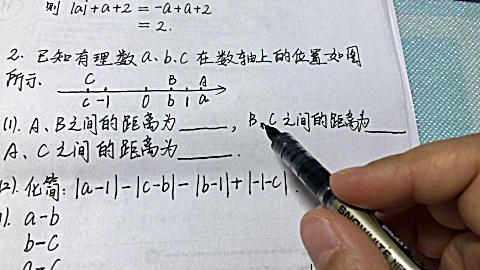 则 |a|+a+2 = -a+a+2
= 2.
2. 已知有理数a、b、c在数轴上的位置如图
所示.
C B A
c -1 0 b 1 a
(1). A、B之间的距离为____, B、C之间的距离为____
A、C之间的距离为____.
(2). 化简: |a-1|-|c-b|-|b-1|+|-1-c|.
1). a-b
b-c
a-c
SNOWHITE